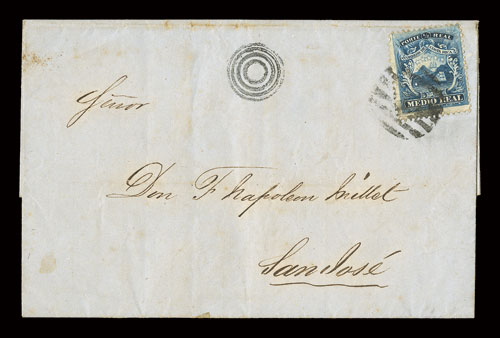 PORTE UN REAL
MEDIO REAL
Señor
Don F. Napoleon Millet
San José